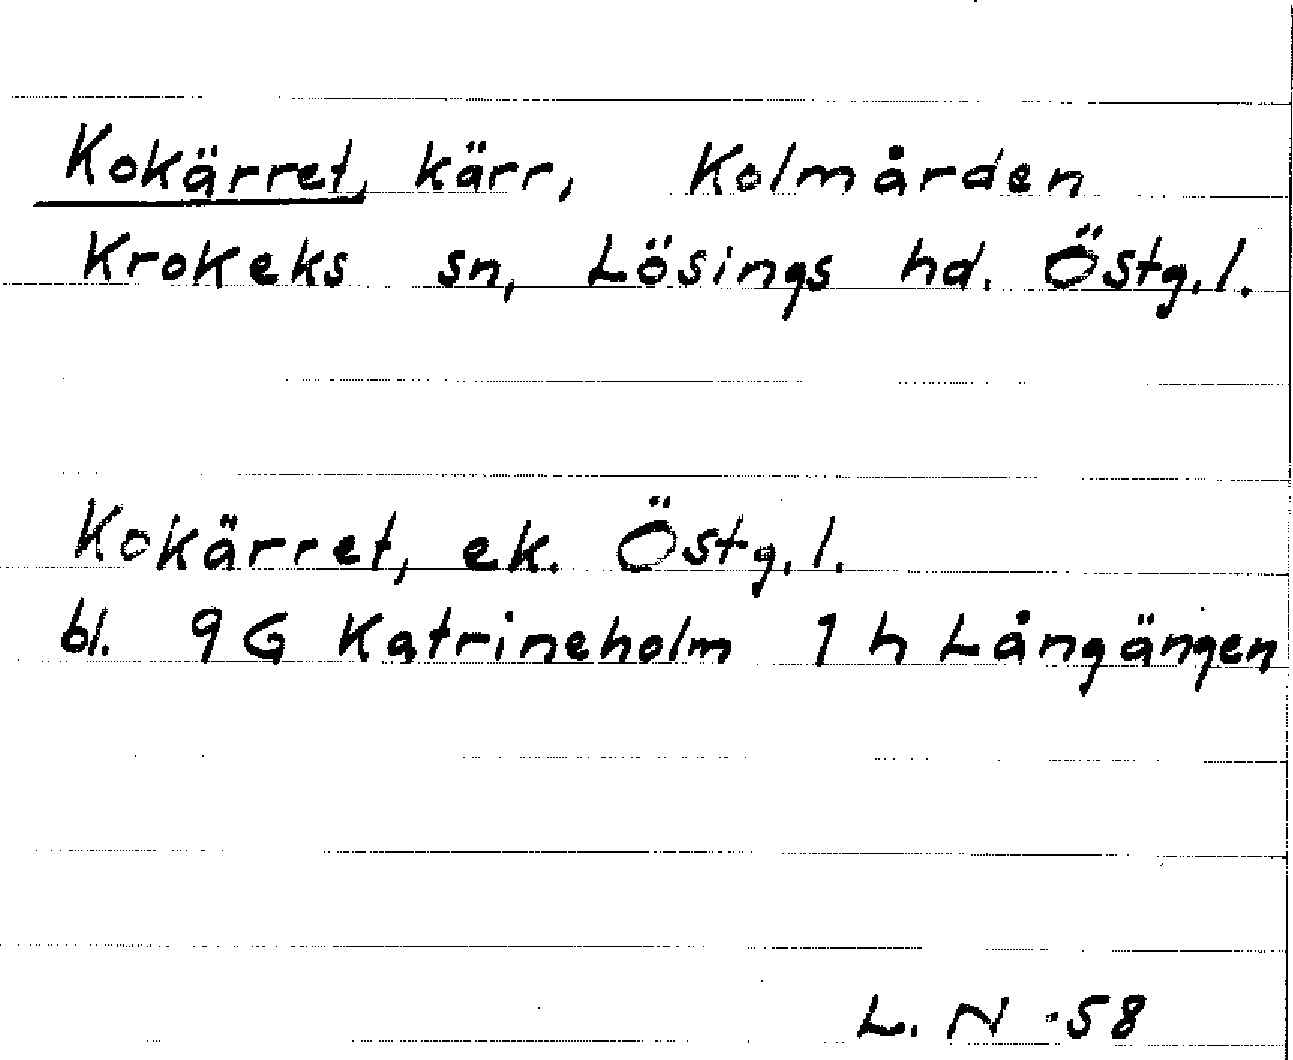 Kokärret, kärr, Kolmården
Krokeks sn, Lösings hd. Östg.l.
Kokärret, ek. Östg.l.
bl. 9G Katrineholm 1h Långängen
L. N -58